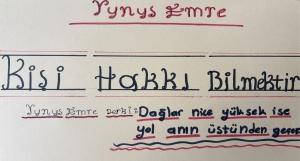 Yunus Emre
Kişi Hakkı Bilmektir
Yunus Emre der ki: Dağlar nice yüksek ise
yol anın üstünden geçer